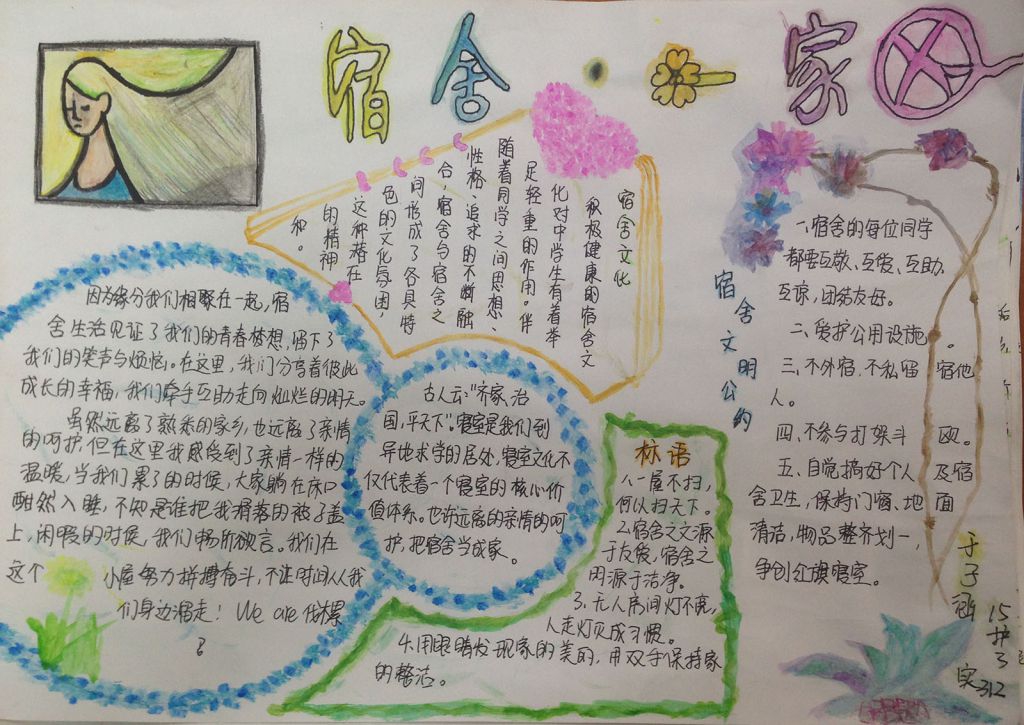 宿舍·家
宿舍文化
积极健康的宿舍文
化对中学生有着举
足轻重的作用。伴
随着同学之间思想、
性格、追求的不断融
合，宿舍与宿舍之
间形成了各具特
色的文化氛围，
这种潜在
的精神
和。
因为缘分我们相聚在一起，宿
舍生活见证了我们的青春梦想，留下了
我们的笑声与烦恼。在这里，我们分享着彼此
成长的幸福，我们牵手互助走向灿烂的明天。
虽然远离了熟悉的家乡，也远离了亲情
的呵护，但在这里我感受到了亲情一样的
温暖，当我们累了的时候，大家躺在床上
酣然入睡，不知是谁把我滑落的被子盖
上，闲暇的时候，我们畅所欲言。我们在
这个 小屋努力拼搏奋斗，不让时间从我
们身边溜走！We are 伐木累
古人云："齐家、治
国，平天下"。寝室是我们到
异地求学的居处，寝室文化不
仅代表着一个寝室的核心价
值体系。也许远离的亲情的呵
护，把宿舍当成家。
标语
1.一屋不扫，
何以扫天下。
2.宿舍之文源
于友爱，宿舍之
明源于洁净。
3.无人房间灯不亮，
人走灯灭成习惯。
4.用眼睛发现家的美的，用双手保持家
的整洁。
宿舍文明公约
一、宿舍的每位同学
都要互敬、互爱、互助、
互谅，团结友好。
二、爱护公用设施。
三、不外宿，不私留宿他
人。
四、不参与打架斗殴。
五、自觉搞好个人及宿
舍卫生，保持门窗、地面
清洁，物品整齐划一，
争创红旗寝室。
于子涵
15护3
实312